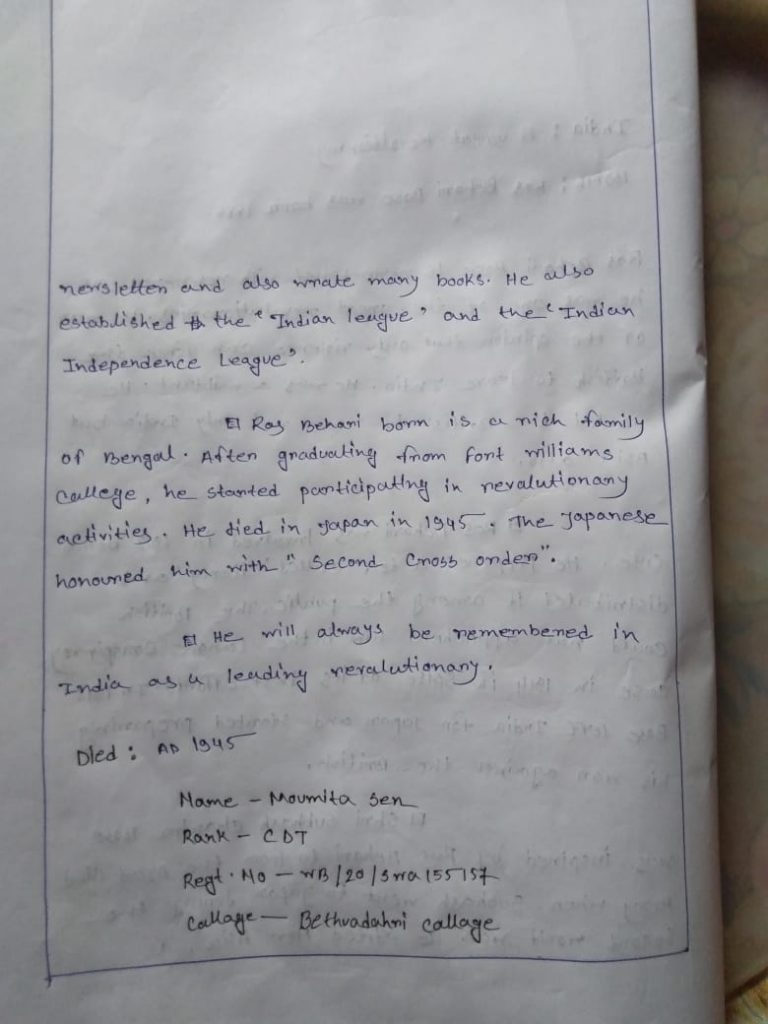 newsletter and also wrate many books. He also
established th the "Indian league" and the "Indian
Independence League".
Ras Behari born is a rich family
of Bengal. After graduating from fort williams
callege, he started participating in revalutionary
activities. He died in yapan in 1945. The Japanese
honoured him with "Second Cross order".
He will always be remembered in
India as a leading revalutionary.
Died: AD 1945
Name - Moumita Sen
Rank - CDT
Regt. No - WB/20/SWA155157
Callage - Bethuadahri callage